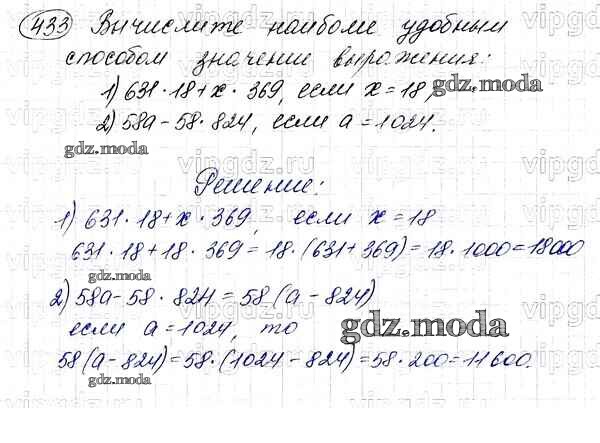 433 Вычислите наиболе удобным
способом значение выражения:
1) 631 · 18 + x · 369, если x = 18,
gdz.moda
2) 58a - 58 · 824, если a = 1024.
gdz.moda
Решение:
1) 631 · 18 + x · 369, если x = 18
631 · 18 + 18 · 369 = 18 · (631 + 369) = 18 · 1000 = 18000
gdz.moda
2) 58a - 58 · 824 = 58 (a - 824)
если a = 1024, то
gdz.moda
58 (a - 824) = 58 · (1024 - 824) = 58 · 200 = 11600.
gdz.moda
vipgdz.ru